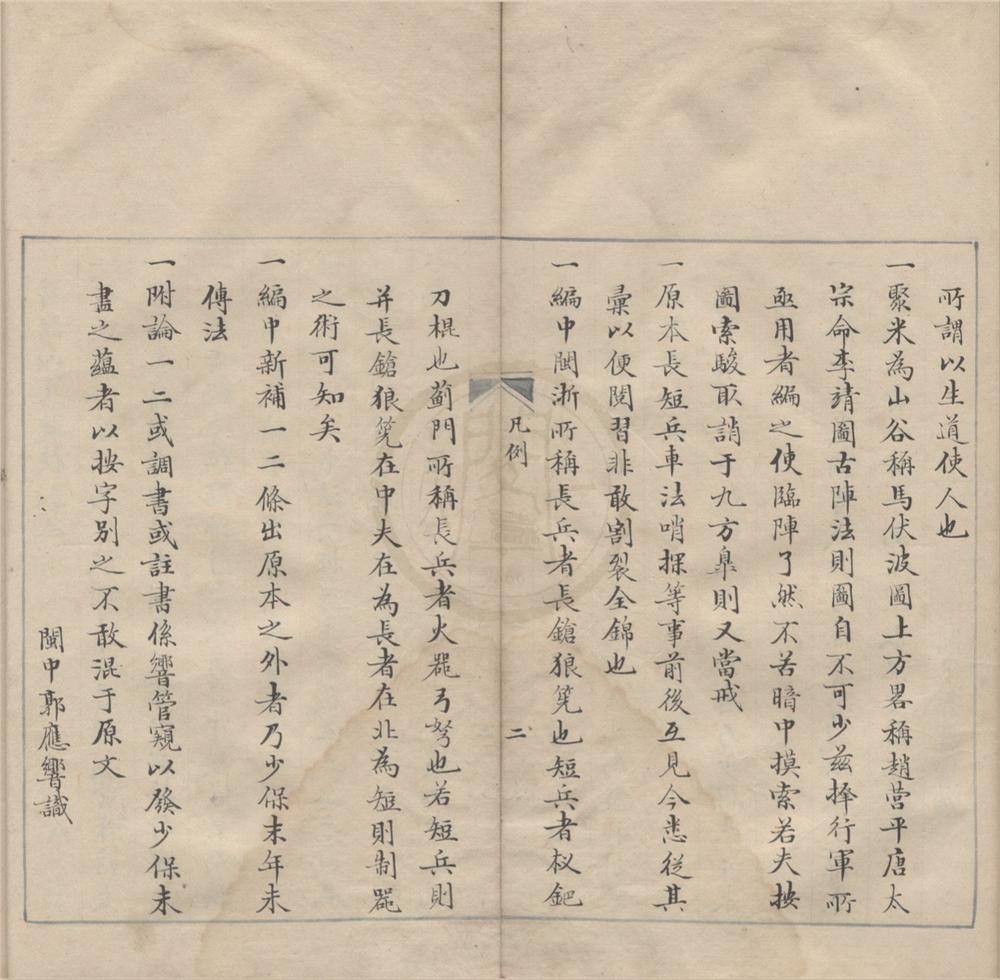 所謂以生道使人也
一聚米為山谷稱馬伏波圖上方畧稱趙營平唐太
宗命李靖圖古陣法則圖自不可少茲擇行軍所
亟用者編之使臨陣了然不苦暗中摸索若夫按
圖索駿取誚于九方臯則又當戒
一原本長短兵車法哨探等事前後互見今悉從其
彙以便閱習非敢割裂全錦也
一編中閩浙所稱長兵者長鎗狼筅也短兵者杈鈀
凡例
二
刀棍也薊門所稱長兵者火器弓弩也若短兵則
并長鎗狼筅在中夫在為長者在北為短則制器
之術可知矣
一編中新補一二條出原本之外者乃少保末年未
傳法
一附論一二或調書或註書係響管窺以發少保未
盡之蘊者以按字別之不敢混于原文
閩中郭應響識